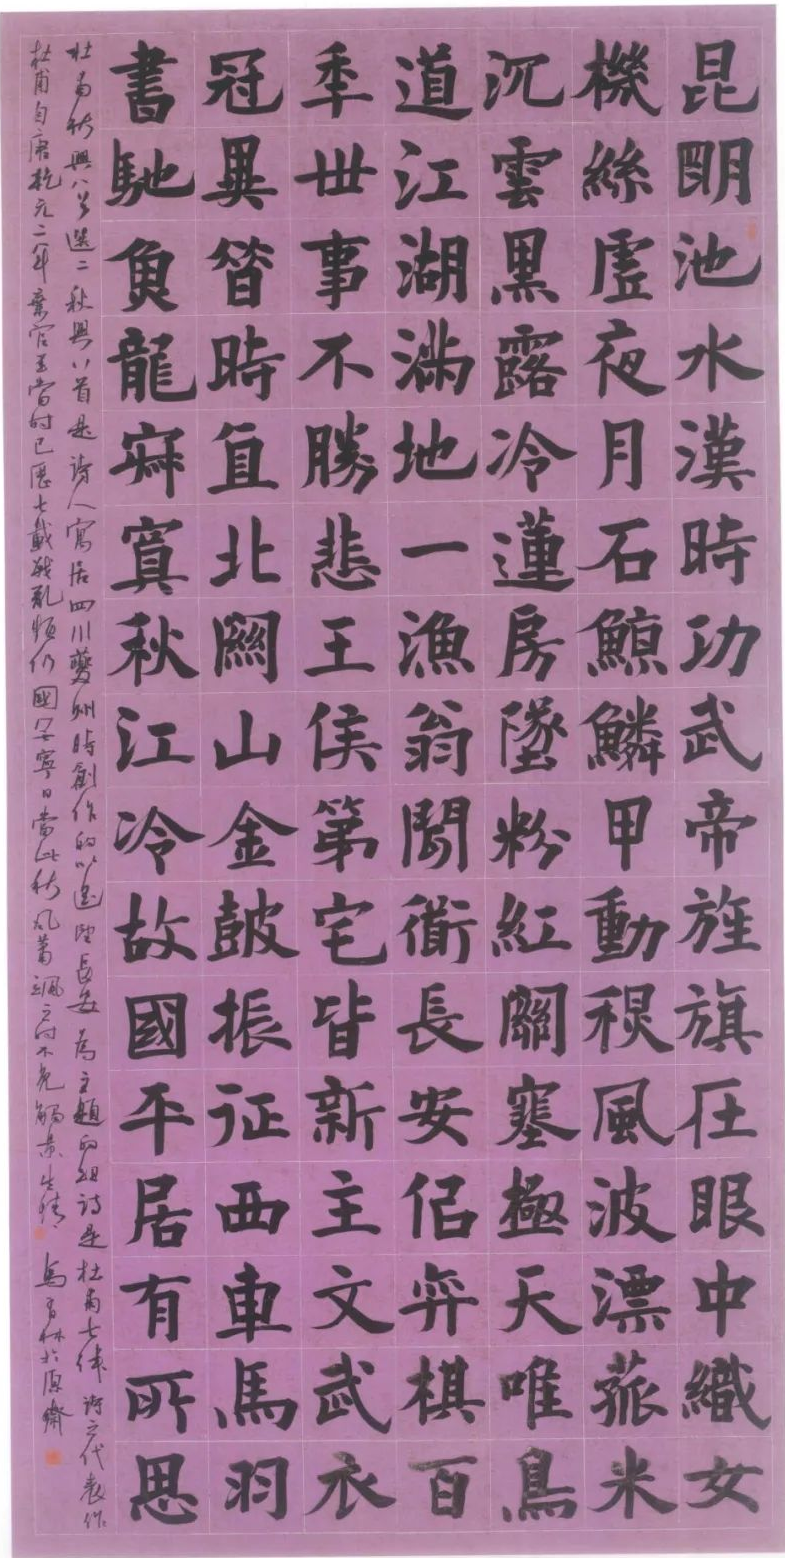 昆明池水漢時功武帝旌旗在眼中織女
機絲虛夜月石鯨鱗甲動秋風波漂菰米
沉雲黑露冷蓮房墜粉紅關塞極天唯鳥
道江湖滿地一漁翁聞道長安似弈棋百
年世事不勝悲王侯第宅皆新主文武衣
冠異昔時直北關山金鼓振征西車馬羽
書馳魚龍寂寞秋江冷故國平居有所思
杜甫秋興八首選二秋興八首是詩人寓居四川夔州時創作的以遙望長安為主題的組詩是杜甫七律詩之代表作
杜甫自唐乾元二年棄官至當時已歷七載戰亂頻仍國無寧日當此秋風蕭颯之時不免觸景生情